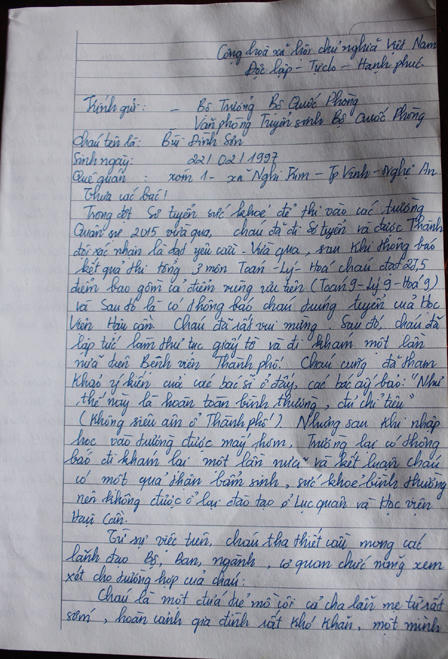 Cộng hoà xã hội chủ nghĩa Việt Nam
Độc lập - Tự do - Hạnh phúc
Kính gửi: - Bộ Trưởng Bộ Quốc Phòng
Văn phòng Tuyển sinh Bộ Quốc Phòng
Cháu tên là: Bùi Đình Sơn
Sinh ngày: 22/02/1997
Quê quán: xóm 1 - xã Nghi Kim - Tp Vinh - Nghệ An
Thưa các bác!
Trong đợt Sơ tuyển sức khoẻ để thi vào các trường
Quân sự 2015 vừa qua, cháu đã đi Sơ tuyển và được Thành
đội xác nhận là đạt yêu cầu - Vừa qua, sau khi thông báo
kết quả thi tổng 3 môn Toán - Lý - Hoá cháu đạt 28,5
điểm bao gồm cả điểm vùng ưu tiên (Toán 9 - Lý 9 - Hoá 9)
và Sau đó là có thông báo cháu trúng tuyển của Học
Viện Hậu cần. Cháu đã rất vui mừng. Sau đó, cháu đã
lập tức làm thủ tục giấy tờ và đi khám một lần
nữa trên Bệnh viện Thành phố. Cháu cũng đã tham
khảo ý kiến của các bác sĩ ở đây, các bác ấy bảo: "Như
thế này là hoàn toàn bình thường, đủ chỉ tiêu"
(Không siêu âm ở Thành phố). Nhưng sau khi nhập
học vào trường được mấy hôm, Trường lại có thông
báo đi khám lại một lần nữa và kết luận cháu
có một quả thận bẩm sinh, sức khoẻ bình thường
nên không được ở lại đào tạo ở Lục quân và Học viện
Hậu Cần.
Từ sự việc trên, cháu tha thiết cầu mong các
lãnh đạo Bộ, Ban, ngành, cơ quan chức năng xem
xét cho trường hợp của cháu:
Cháu là một đứa trẻ mồ côi cả cha lẫn mẹ từ rất
sớm, hoàn cảnh gia đình rất khó khăn, một mình